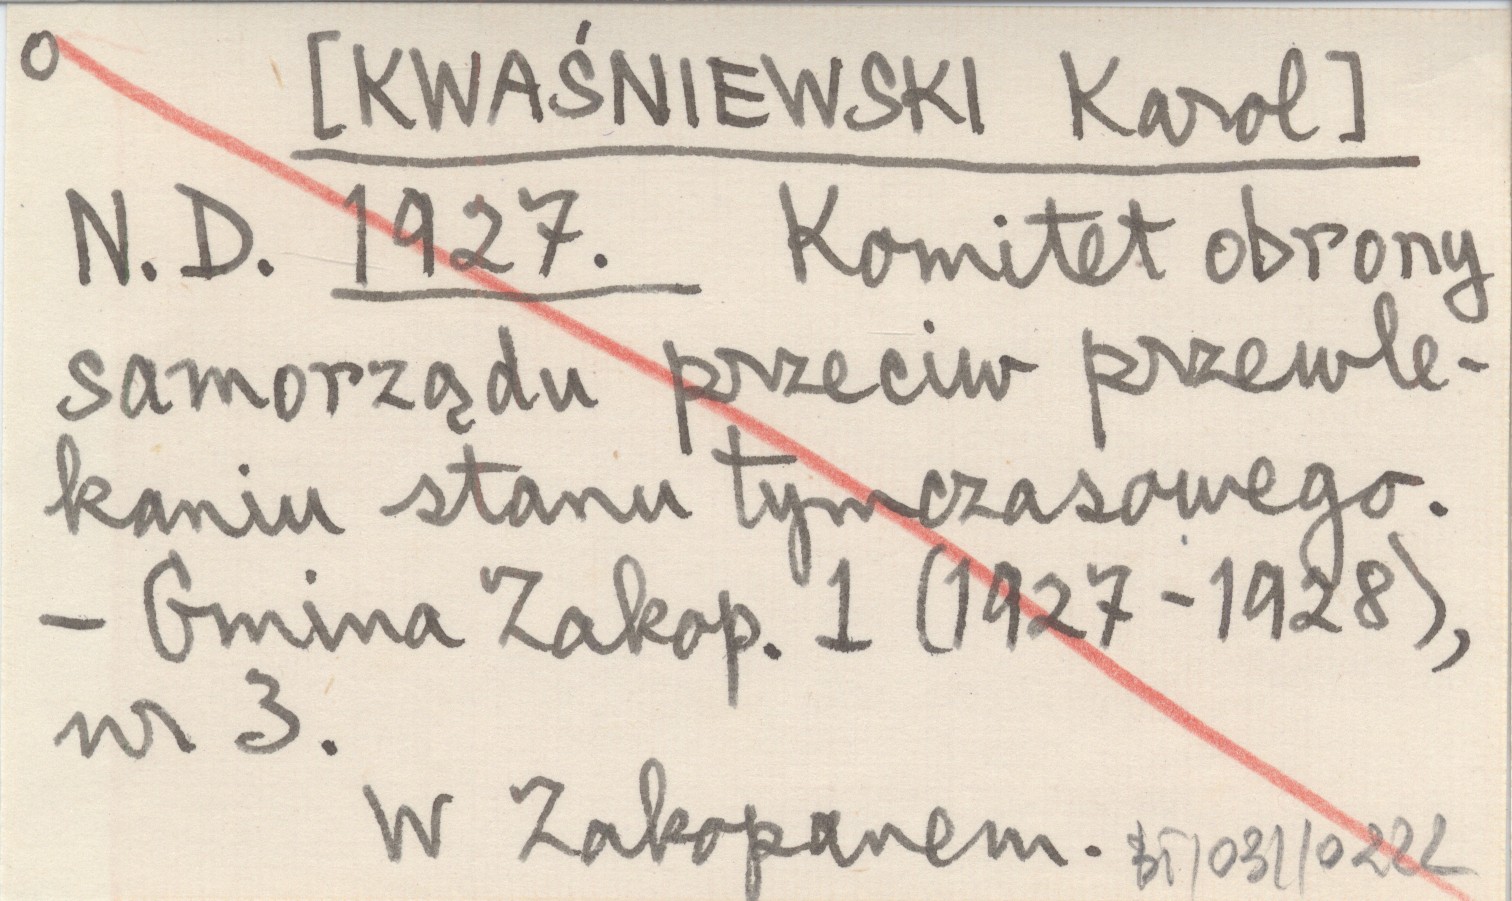 o [KWAŚNIEWSKI Karol]
N. D. 1927. Komitet obrony
samorządu przeciw przewle-
kaniu stanu tymczasowego.
- Gmina Zakop. 1 (1927-1928),
nr 3.
W Zakopanem.